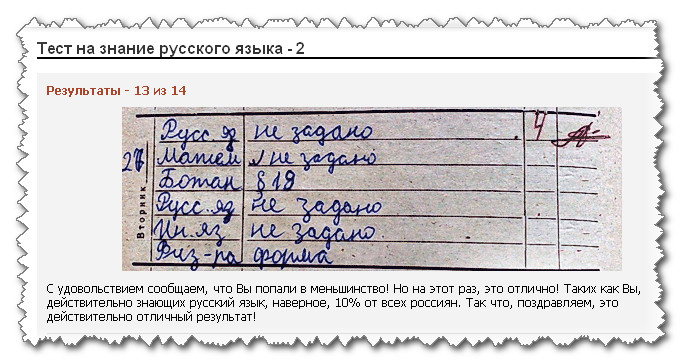 Тест на знание русского языка - 2
Результаты - 13 из 14
Русс. яз не задано 4
Матем не задано
Ботан § 19
Русс. яз не задано
Ин. яз не задано
Физ-ра форма
27
Вторник
С удовольствием сообщаем, что Вы попали в меньшинство! Но на этот раз, это отлично! Таких как Вы,
действительно знающих русский язык, наверное, 10% от всех россиян. Так что, поздравляем, это
действительно отличный результат!